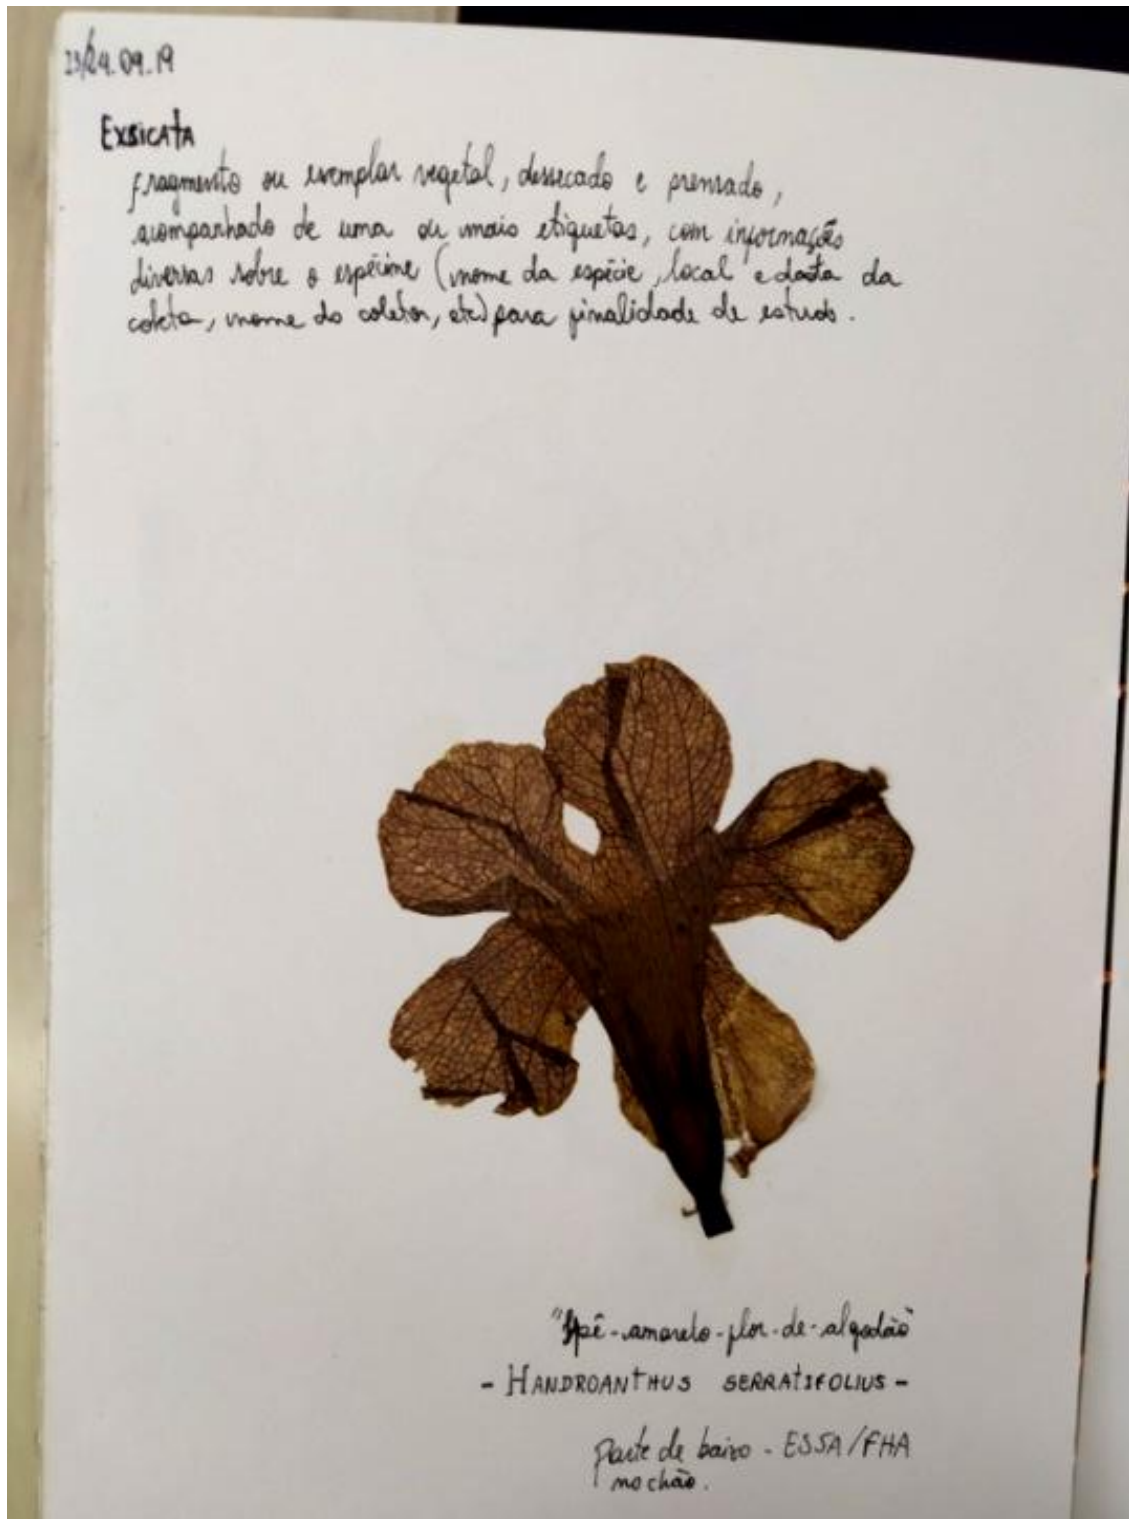 23/24.09.19
EXSICATA
fragmento ou exemplar vegetal, dessecado e prensado,
acompanhado de uma ou mais etiquetas, com informações
diversas sobre o espécime (nome da espécie, local e data da
coleta, nome do coletor, etc) para finalidade de estudo.
"Ipê-amarelo-flor-de-algodão"
- HANDROANTHUS SERRATIFOLIUS -
parte de baixo - ESSA/FHA
no chão.